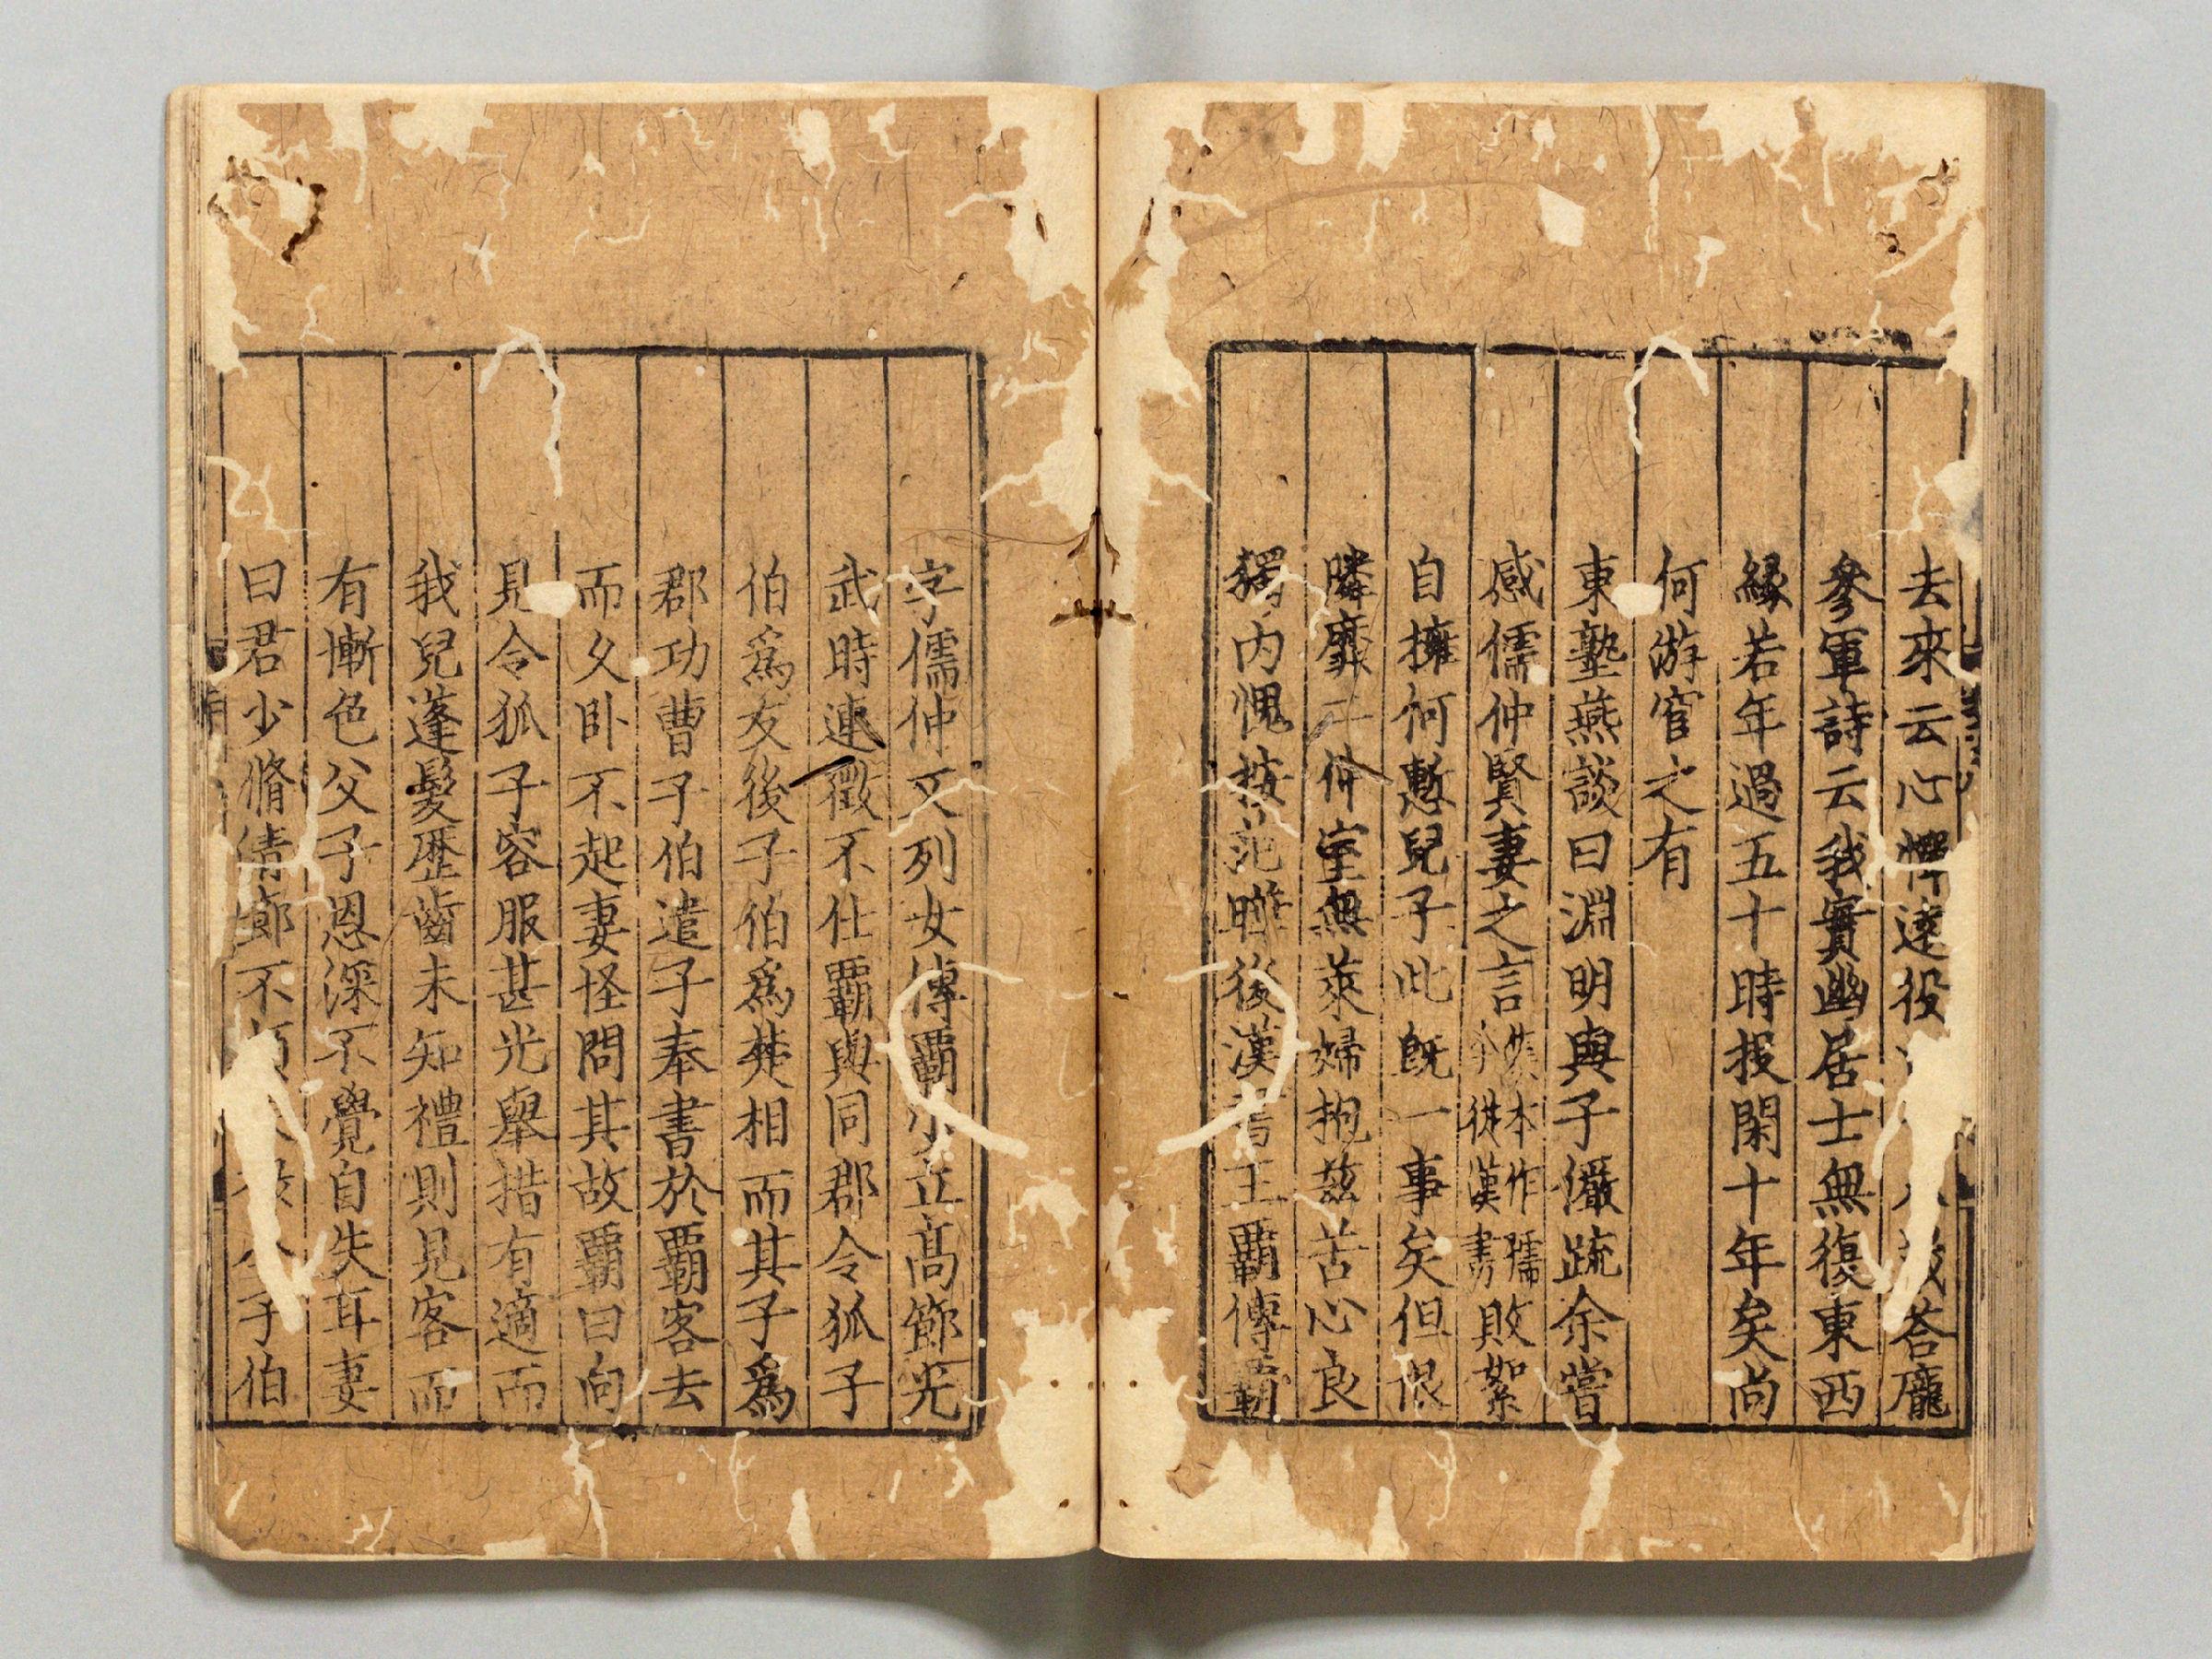 去來云心憚遠役答龐
參軍詩云我實幽居士無復東西
緣若年過五十時投閑十年矣尚
何游宦之有
東塾燕談曰淵明與子儼疏余嘗
感儒仲賢妻之言集本作孺今從漢書敗絮
自擁何慙兒子此旣一事矣但恨
隣靡二仲室無萊婦抱茲苦心良
獨內愧按范曄後漢書王覇傳覇
字儒仲又列女傳覇少立高節光
武時連徵不仕覇與同郡令狐子
伯爲友後子伯爲楚相而其子爲
郡功曹子伯遣子奉書於覇客去
而久卧不起妻怪問其故覇曰向
見令狐子容服甚光舉措有適而
我兒蓬髮歷齒未知禮則見客而
有慚色父子恩深不覺自失耳妻
曰君少脩淸節不子伯